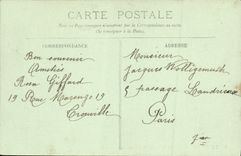 CARTE POSTALE
Tous les Pays étrangers n'acceptent pas la Correspondance au recto
(Se renseigner à la Poste)
CORRESPONDANCE
ADRESSE
Bon souvenir
Amitiés
Rosa Giffard
19 Rue Marengo 19
Trouville
Monsieur
Jacques Wohlgemuth
5 passage Landrieu
Paris
7me